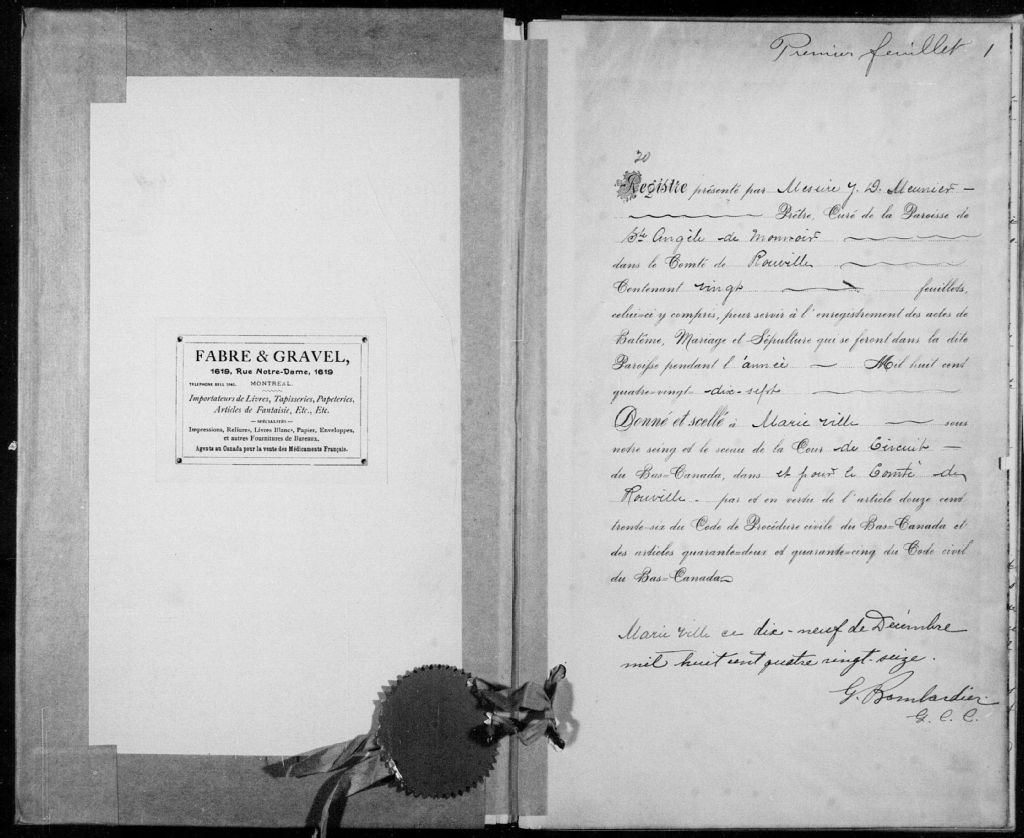 FABRE & GRAVEL,
1619, Rue Notre-Dame, 1619
TELEPHONE BELL
MONTREAL.
Importateurs de Livres, Tapisseries, Papeteries,
Articles de Fantaisie, Etc., Etc.
— SPÉCIALITÉS —
Impressions, Reliures, Livres Blancs, Papier, Enveloppes,
et autres Fournitures de Bureaux.
Agents au Canada pour la vente des Médicaments Français.
Premier feuillet 1
20
Registre présenté par Messire J. D. Meunier —
Prêtre, Curé de la Paroisse de
Ste Angèle de Monnoir
dans le Comté de Rouville
Contenant vingt — feuillets,
celui=ci y compris, pour servir à l'enregistrement des actes de
Batême, Mariage et Sépulture qui se feront dans la dite
Paroisse pendant l'année — Mil huit cent
quatre-vingt dix-sept
Donné et scellé à Marieville — sous
notre seing et le sceau de la Cour de Circuit —
du Bas=Canada, dans et pour le Comté de
Rouville - par et en vertu de l'article douze cent
trente-six du Code de Procédure civile du Bas=Canada et
des articles quarante=deux et quarante=cinq du Code civil
du Bas=Canada
Marieville ce dix-neuf de Décembre
mil huit cent quatre vingt-seize.
G. Bombardier
G. C. C.